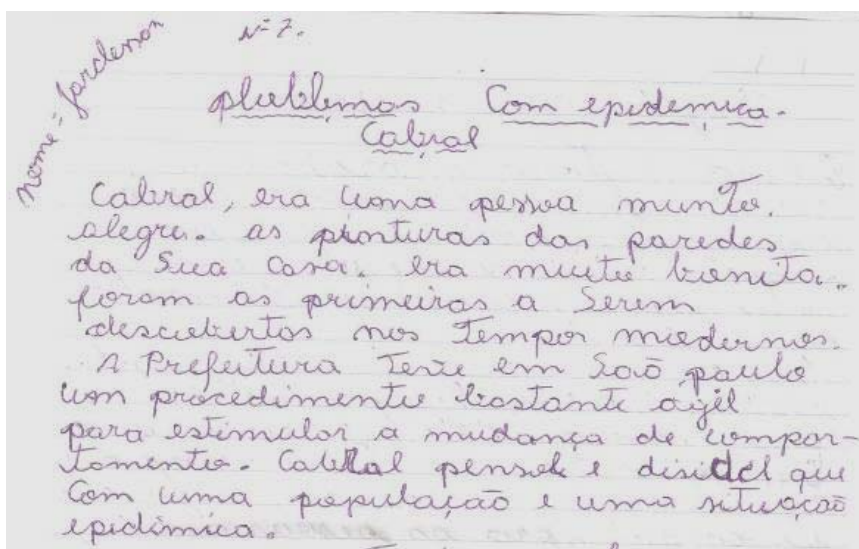 nome = Jarderson
Nº 7.
plublemas Com epidemica.
Cabral
Cabral, era uma pessoa munto.
alegre. as pinturas das paredes
da Sua Casa. era muito bonita.
foram as primeiras a Serem
descubertos nos tempos modernos.
A Prefeitura Teve em Saõ paulo
um procedimento bastante agil
para estimular a mudança de compor-
tamento. Cabral pensol e disidel que
Com uma população e uma situação
epidimica.